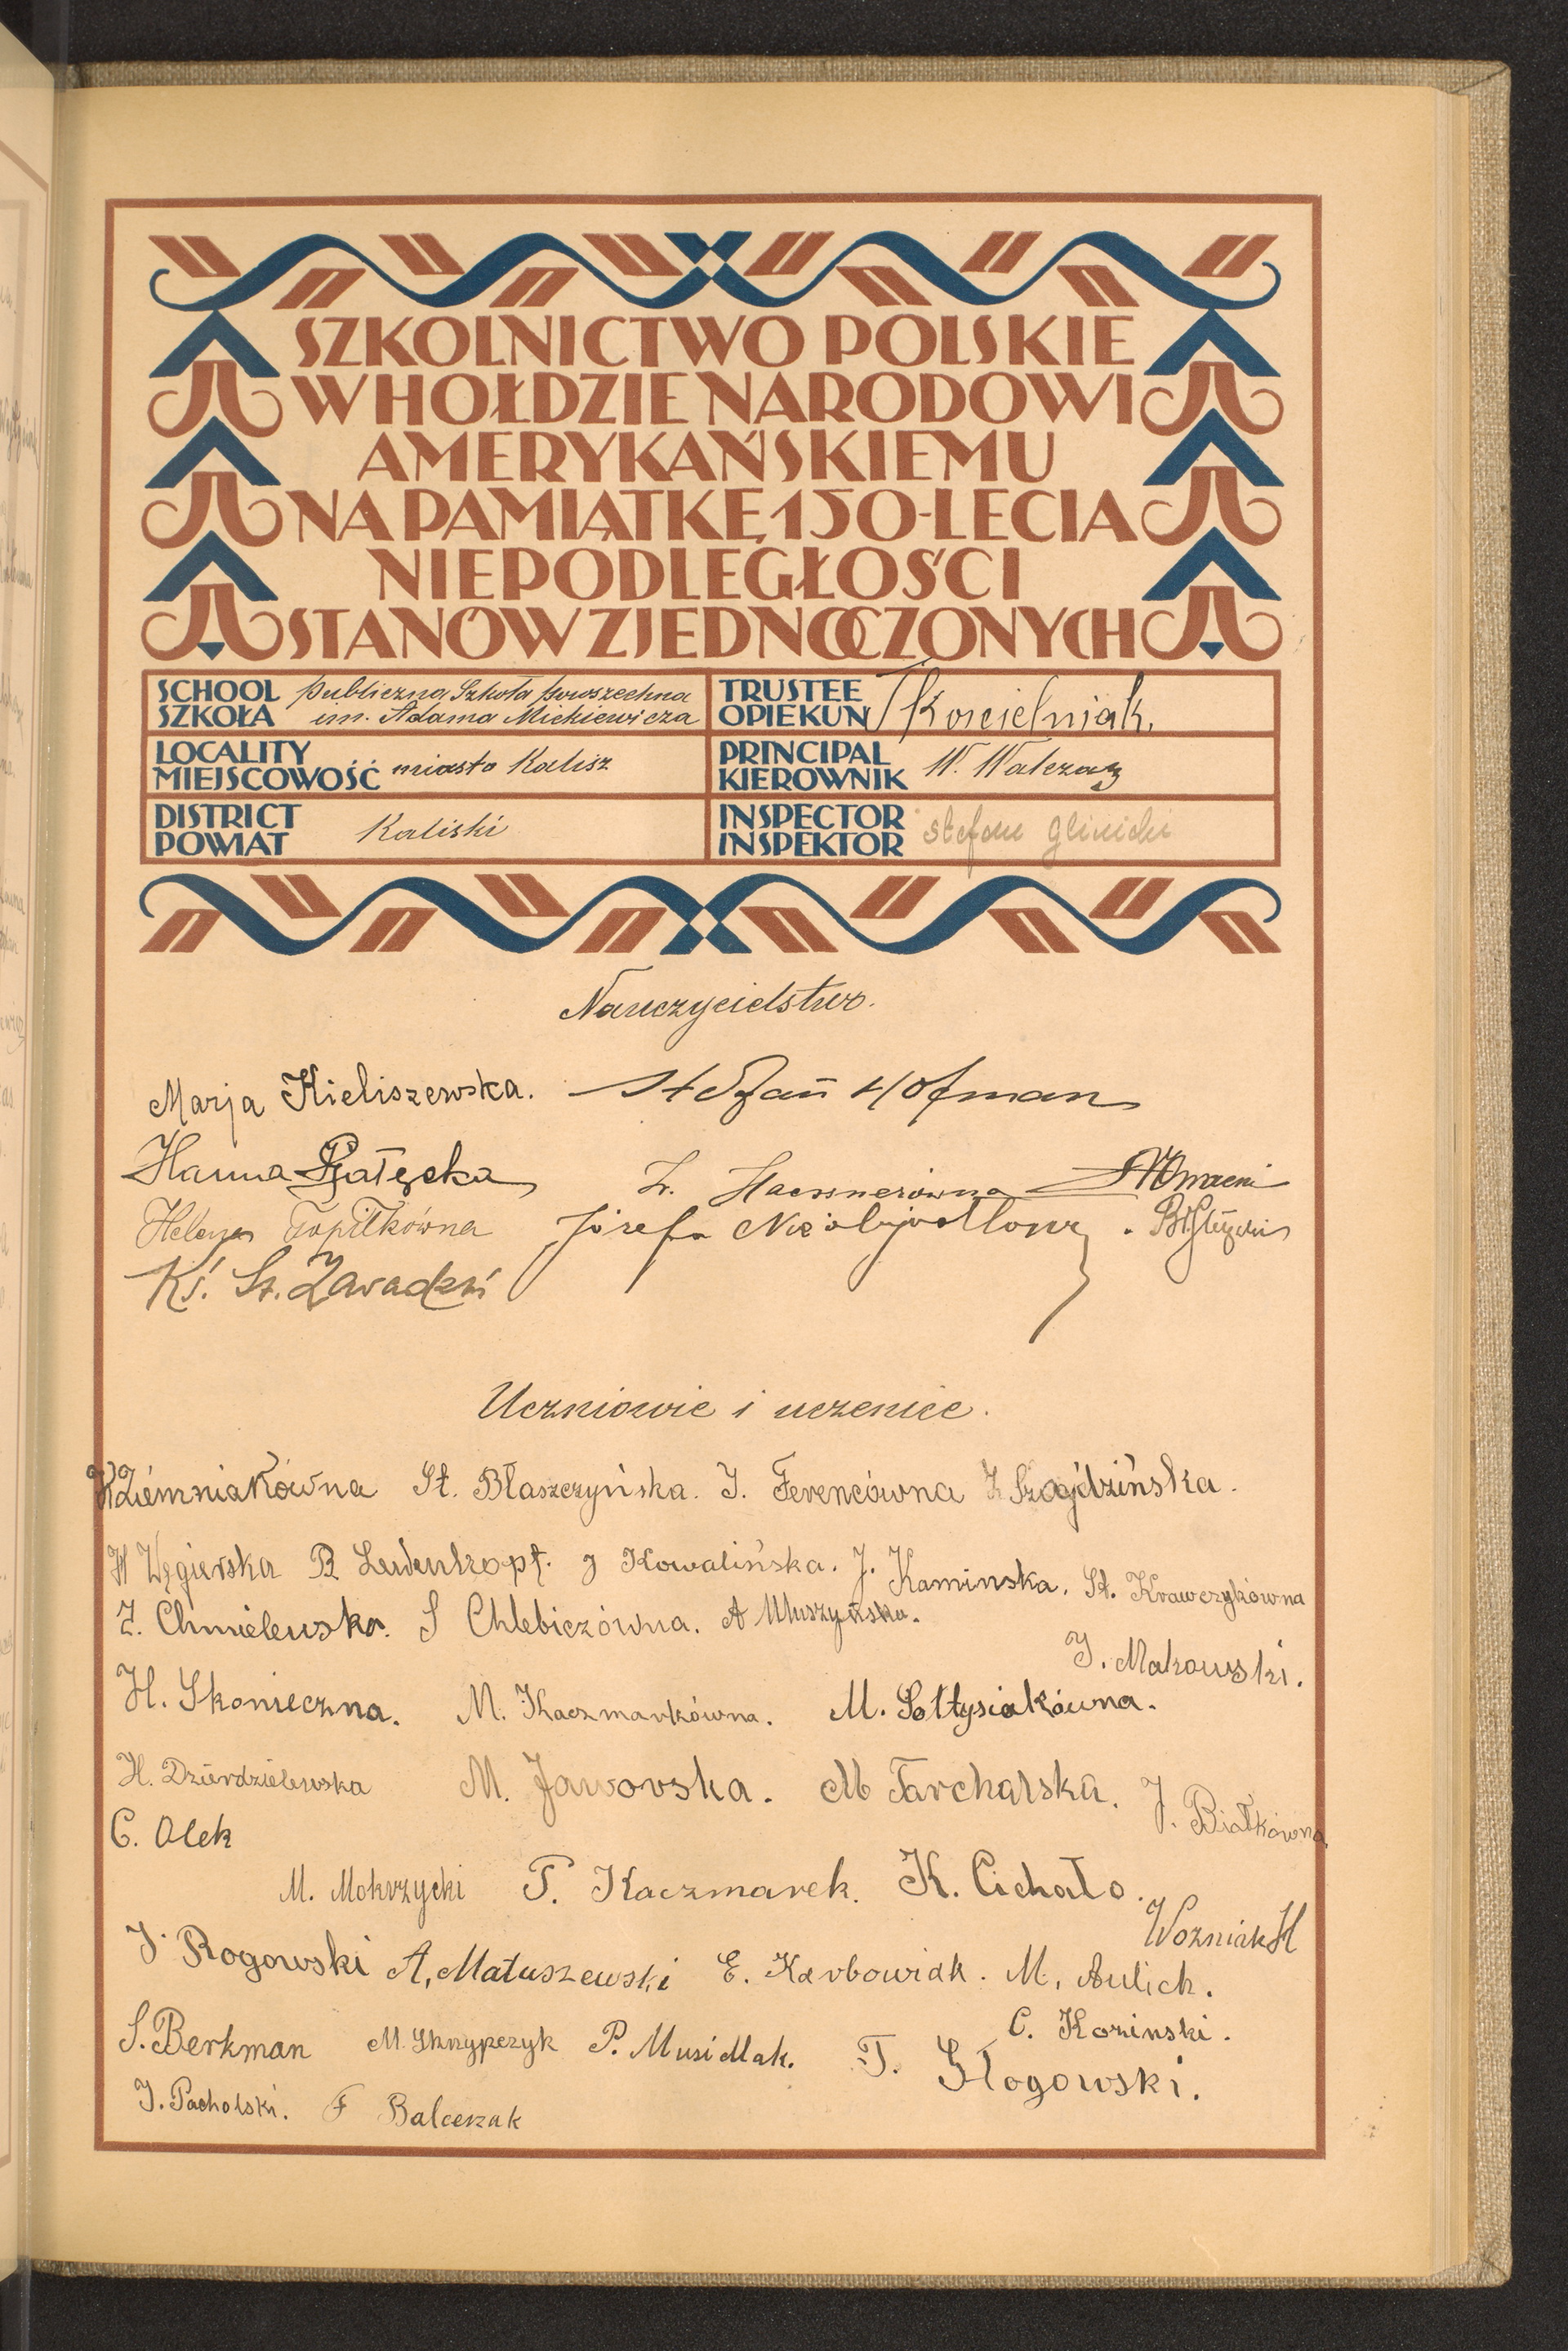 SZKOLNICTWO POLSKIE
W HOŁDZIE NARODOWI
AMERYKAŃSKIEMU
NA PAMIĄTKĘ 150-LECIA
NIEPODLEGŁOŚCI
STANÓW ZJEDNOCZONYCH
SCHOOL SZKOŁA publiczna Szkoła powszechna
im. Adama Mickiewicza
TRUSTEE OPIEKUN Kościelniak.
LOCALITY MIEJSCOWOŚĆ miasto Kalisz
PRINCIPAL KIEROWNIK W. Walczak
DISTRICT POWIAT Kaliski
INSPECTOR INSPEKTOR Stefan Glinicki
Nauczycielstwo.
Marja Kieliszewska. Stefan Hofman
Hanna
Z. Haessnerówna
Helena Topilkówna Józefa
Ks. St. Zawadzki
Uczniowie i uczenice.
Ziemniakówna St. Błaszczyńska. J. Ferencówna Z Szajdzińska.
H Węgierska R J Kowalińska. J. Kaminska. St. Krawczykówna
Z. Chmielewska. S Chlebiczówna. A Muszyńska.
J. Makowski.
H. Skonieczna. M. Kaczmarkówna. M. Sołtysiakówna.
H. Dzierdzielewska M. Jaworska. M Tarchalska. J. Białkówna
C. Olek
M. Mokrzycki T. Kaczmarek. K. Cichało.
Woźniak H
J. Rogowski A. Matuszewski E. Karbowiak. M. Aulich.
C. Kozinski.
S. Berkman M. Skrzypczyk P. Musidlak. T. Głogowski.
J. Pacholski. F Balcerzak